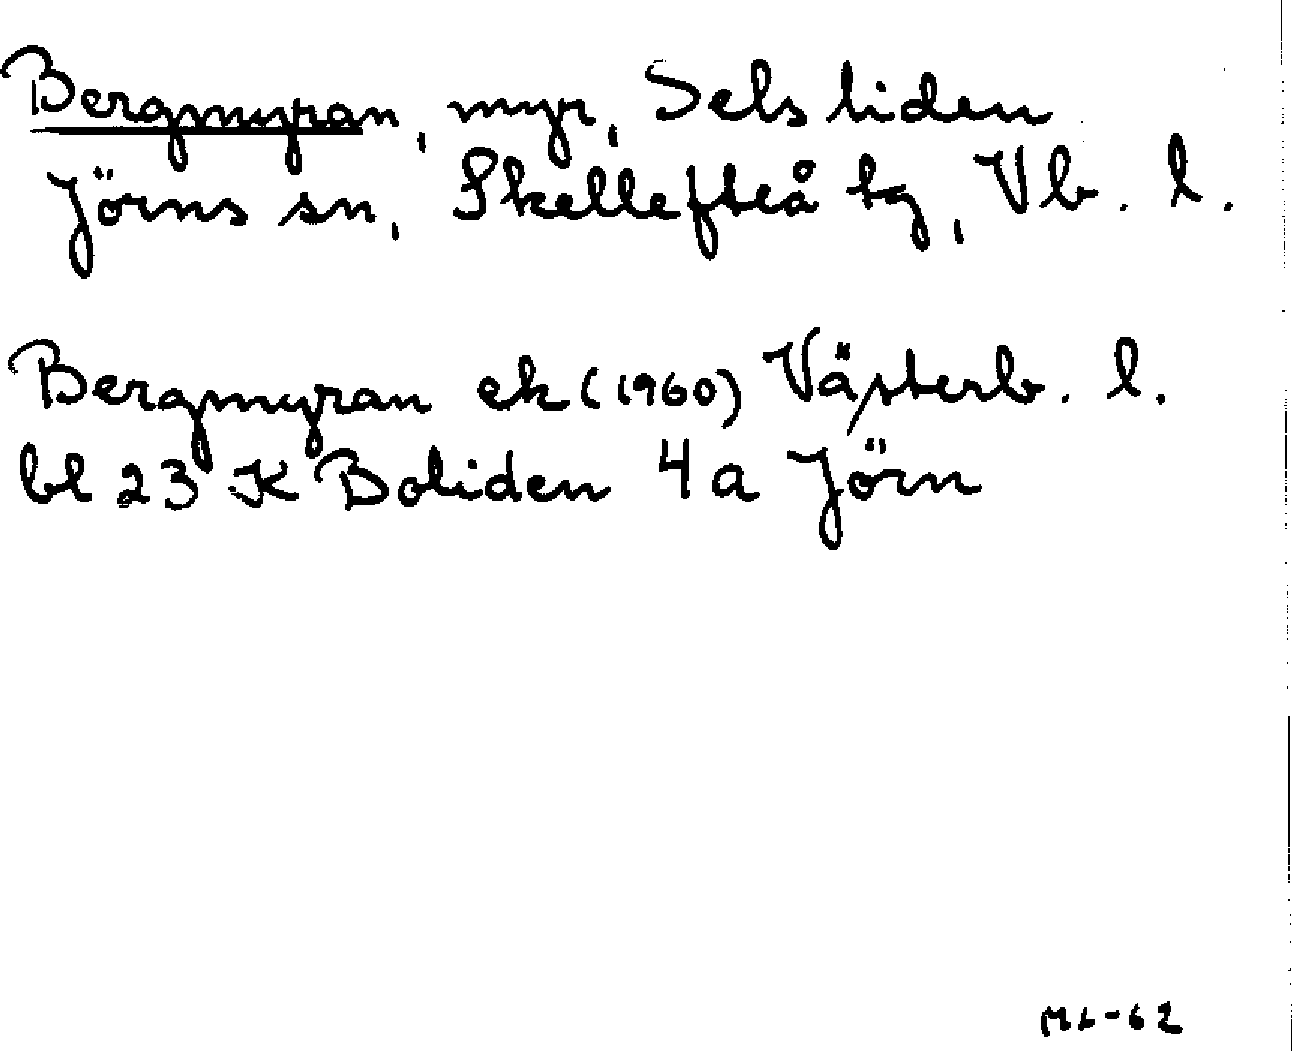 Bergmyran, myr, Selsliden
Jörns sn, Skellefteå tg, Vb. l.
Bergmyran ek (1960) Västerb. l.
bl 23 K Boliden 4a Jörn
ML-62